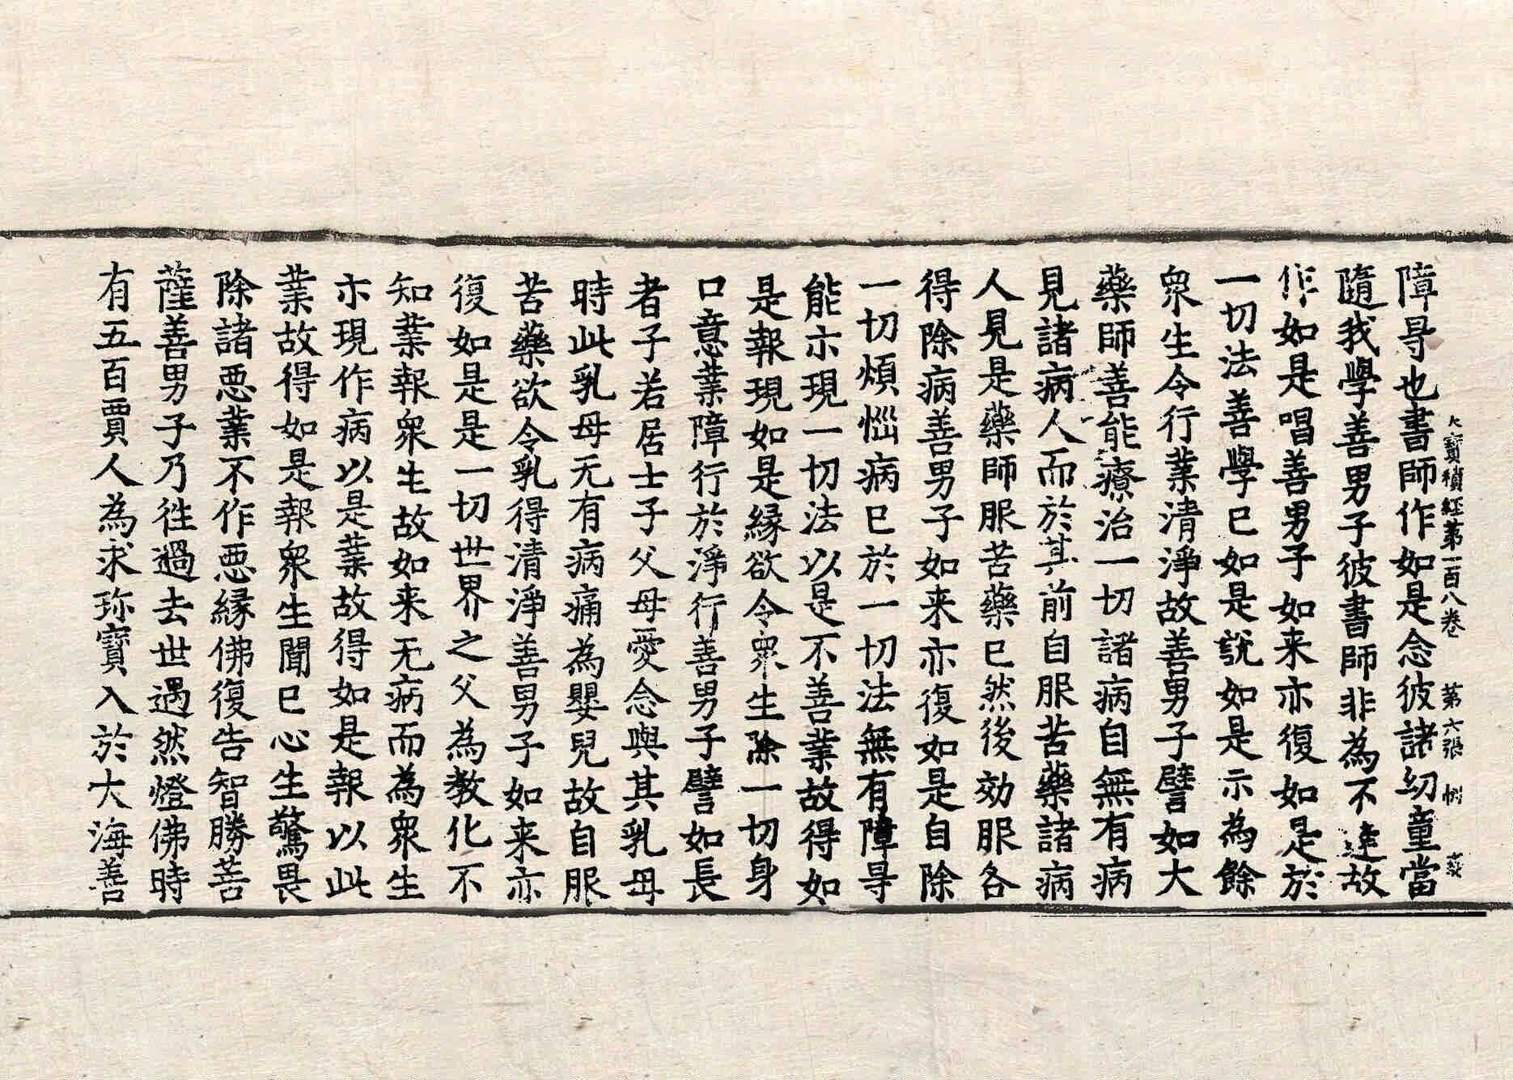 大寳積經第一百八卷 第六張
障㝵也書師作如是念彼諸幼童當
隨我學善男子彼書師非為不達故
作如是唱善男子如来亦復如是於
一切法善學已如是說如是示為餘
衆生令行業清淨故善男子譬如大
藥師善能療治一切諸病自無有病
見諸病人而於其前自服苦藥諸病
人見是藥師服苦藥已然後効服各
得除病善男子如来亦復如是自除
一切煩惱病已於一切法無有障㝵
能示現一切法以是不善業故得如
是報現如是縁欲令衆生除一切身
口意業障行於淨行善男子譬如長
者子若居士子父母愛念與其乳母
時此乳母无有病痛為嬰兒故自服
苦藥欲令乳得清淨善男子如来亦
復如是是一切世界之父為教化不
知業報衆生故如来无病而為衆生
示現作病以是業故得如是報以此
業故得如是報衆生聞已心生驚畏
除諸惡業不作惡縁佛復告智勝菩
薩善男子乃徃過去世遇然燈佛時
有五百賈人為求珎寳入於大海善